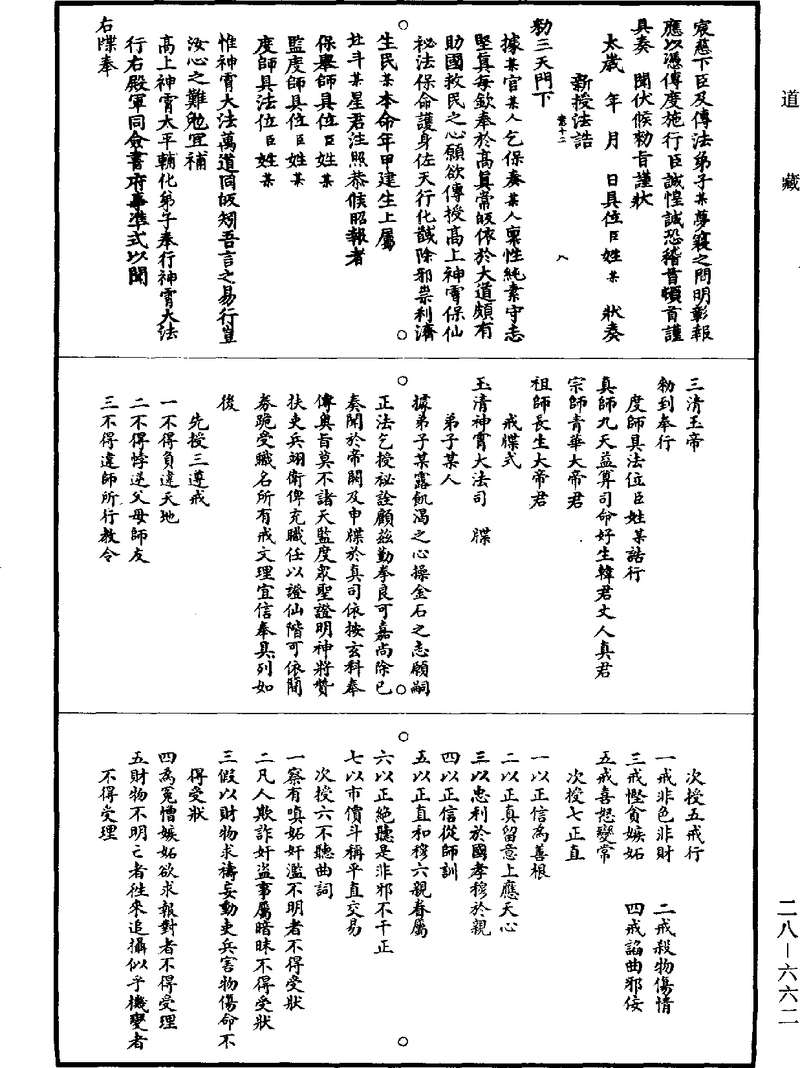 道藏
宸慈下臣及傳法弟子某夢寐之間明彰報
應以憑傳度施行臣誠惶誠恐稽首頓首謹
具奏　聞伏候勑旨謹狀
太歲　年　月　日具位臣姓某　狀奏
新授法誥　卷十二　八
勑三天門下
據某官某人乞保奏某人稟性純素守志
堅真每欽奉於高真常皈依於大道頗有
助國救民之心願欲傳授高上神霄保仙
祕法保命護身佐天行化誠除邪祟利濟
生民某本命年甲建生上屬
北斗某星君注照恭候昭報者
保舉師具位臣姓某
監度師具位臣姓某
度師具法位臣姓某
惟神霄大法萬道同皈矧吾言之易行豈
汝心之難勉宜補
高上神霄太平輔化弟子奉行神霄大法
行右殿軍同僉書府事準式以聞
右牒奉
三清玉帝
勑到奉行
度師具法位臣姓某誥行
真師九天益算司命好生韓君丈人真君
宗師青華大帝君
祖師長生大帝君
戒牒式
玉清神霄大法司　牒
弟子某人
據弟子某露飢渴之心操金石之志願嗣
正法乞授祕詮顧茲勤拳良可嘉尚除已
奏聞於帝闕及申牒於真司依按玄科奉
傳奧旨莫不諸天監度眾聖證明神將贊
扶吏兵翊衛俾充職任以證仙階可依簡
券跪受職名所有戒文理宜信奉具列如
後
先授三遵戒
一不得負違天地
二不得悖逆父母師友
三不得違師所行教令
次授五戒行
一戒非色非財　二戒殺物傷情
三戒慳貪嫉妬　四戒諂曲邪佞
五戒喜怒變常
次授七正直
一以正信為善根
二以正真留意上應天心
三以忠利於國孝穆於親
四以正信從師訓
五以正直和穆六親眷屬
六以正絕聽是非邪不干正
七以市價斗稱平直交易
次授六不聽曲詞
一察有嗔妬奸濫不明者不得受狀
二凡人欺詐奸盜事屬暗昧不得受狀
三假以財物求禱妄動吏兵害物傷命不
得受狀
四為冤憎嫉妬欲求報對者不得受理
五財物不明亡者往來追攝似乎機變者
不得受理
二八—六六二